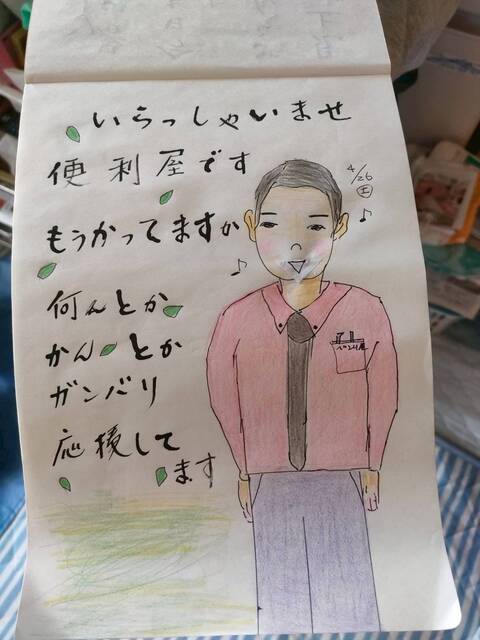 いらっしゃいませ
便利屋です
もうかってますか
何んとか
かんとか
ガンバリ
応援して
ます
4/26
土
ベンリ屋